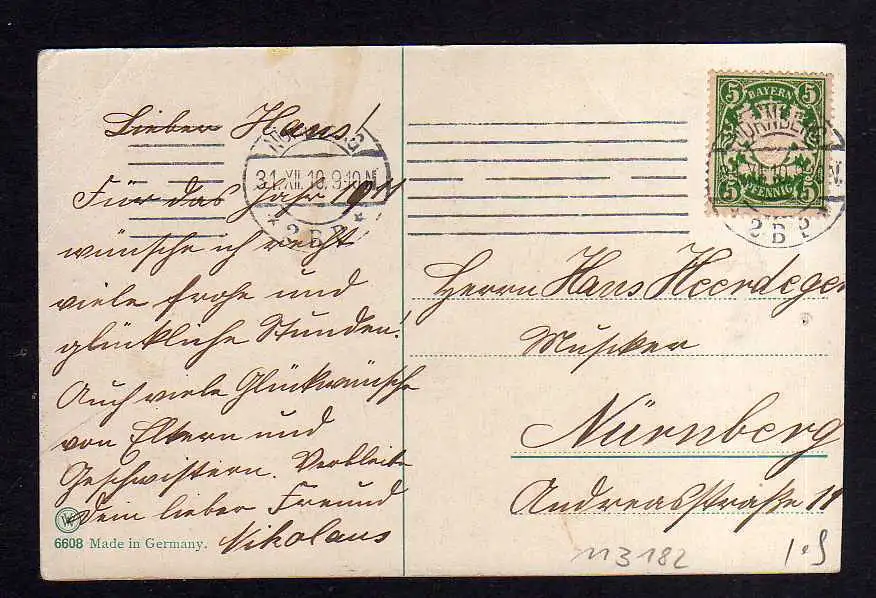 Lieber Hans!
Für das Jahr 1911
wünsche ich recht
viele frohe und
glückliche Stunden!
Auch viele Glückwünsche
von Eltern und
Geschwistern. Verbleibe
Dein lieber Freund
Nikolaus
6608 Made in Germany.
31.XII.10.9-10N.
* 2 B P *
5 BAYERN 5
5 PFENNIG 5
NÜRNBERG
2 B P
Herrn Hans Heerdegen
Musiker
Nürnberg
Andreasstraße 11
113182